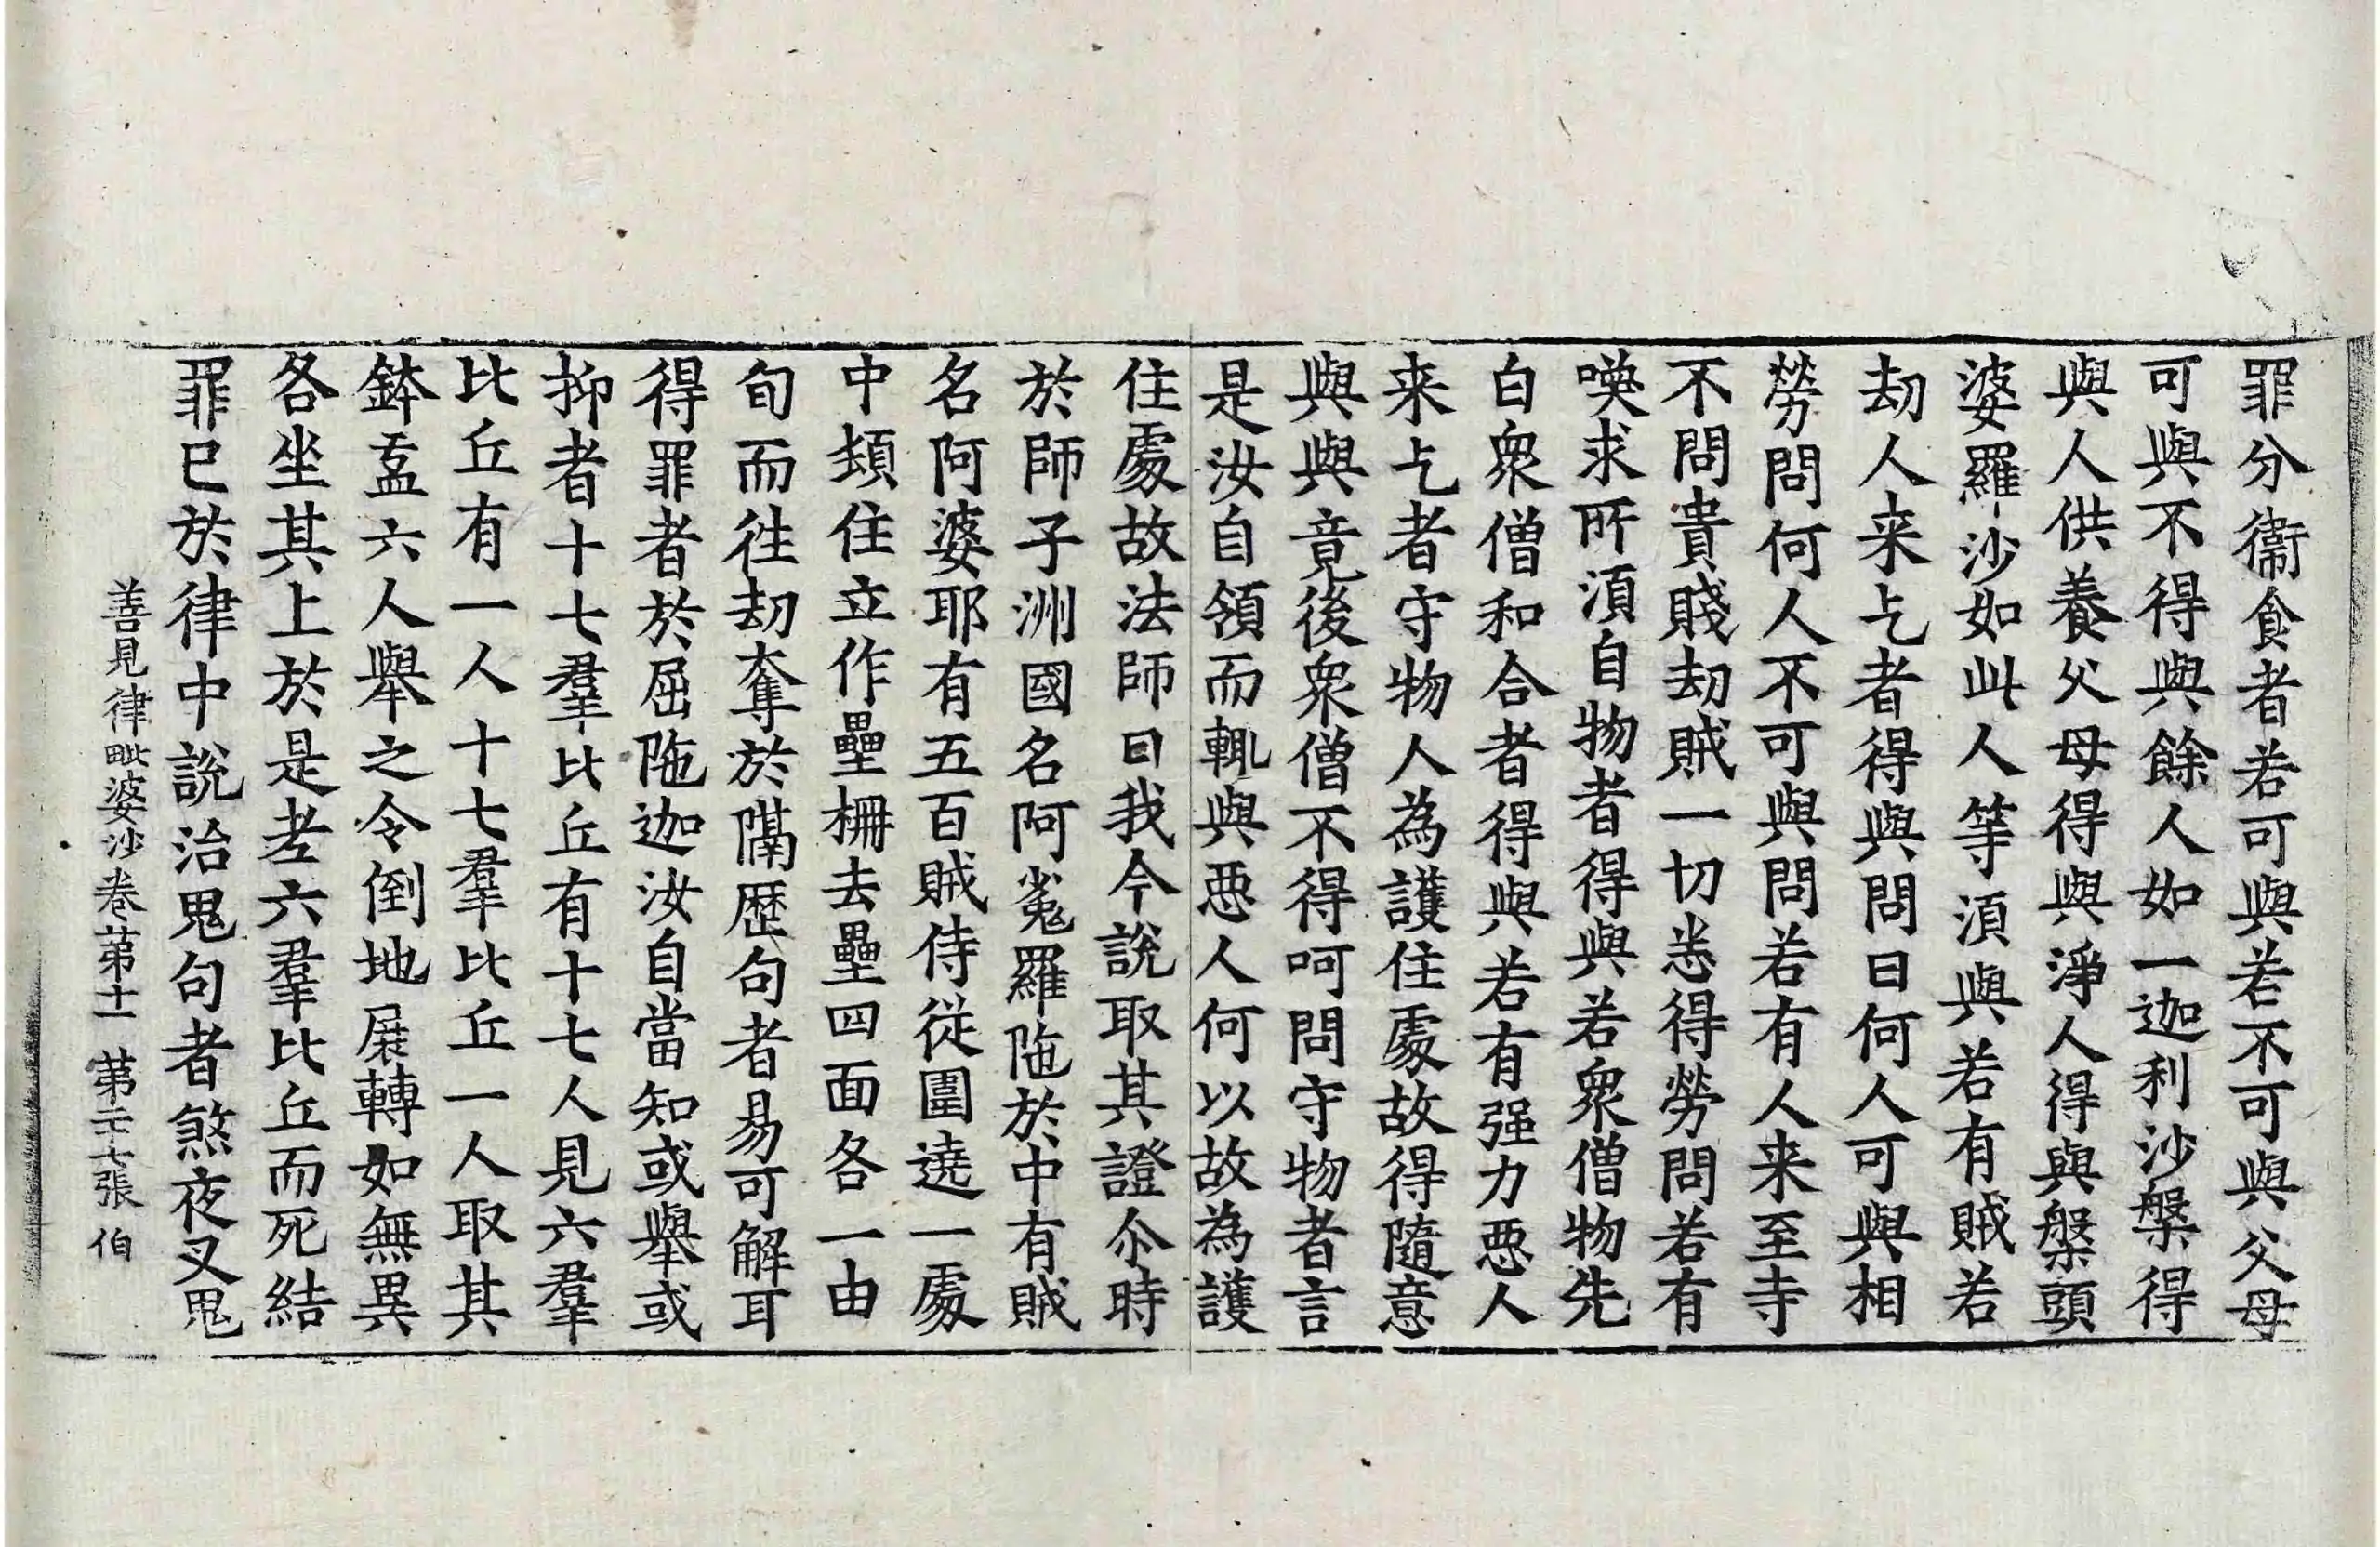 罪分衞食者若可與若不可與父母
可與不得與餘人如一迦利沙槃得
與人供養父母得與淨人得與槃頭
婆羅沙如此人等湏與若有賊若
劫人来乞者得與問曰何人可與相
勞問何人不可與問若有人来至寺
不問貴賤劫賊一切悉得勞問若有
喚求所湏自物者得與若衆僧物先
白衆僧和合者得與若有强力惡人
来乞者守物人為護住處故得隨意
與與竟後衆僧不得呵問守物者言
是汝自領而輒與惡人何以故為護
住處故法師曰我今說取其證尒時
於師子洲國名阿㝹羅陁於中有賊
名阿婆耶有五百賊侍從圍遶一處
中頓住立作壘柵去壘四面各一由
旬而往劫奪於隔歷句者易可解耳
得罪者於屈陁迦汝自當知或舉或
抑者十七羣比丘有十七人見六羣
比丘有一人十七羣比丘一人取其
鉢盂六人舉之令倒地屎轉如無異
各坐其上於是老六羣比丘而死結
罪已於律中說治鬼句者煞夜叉鬼
善見律毗婆沙卷苐十一 苐二十七張 伯